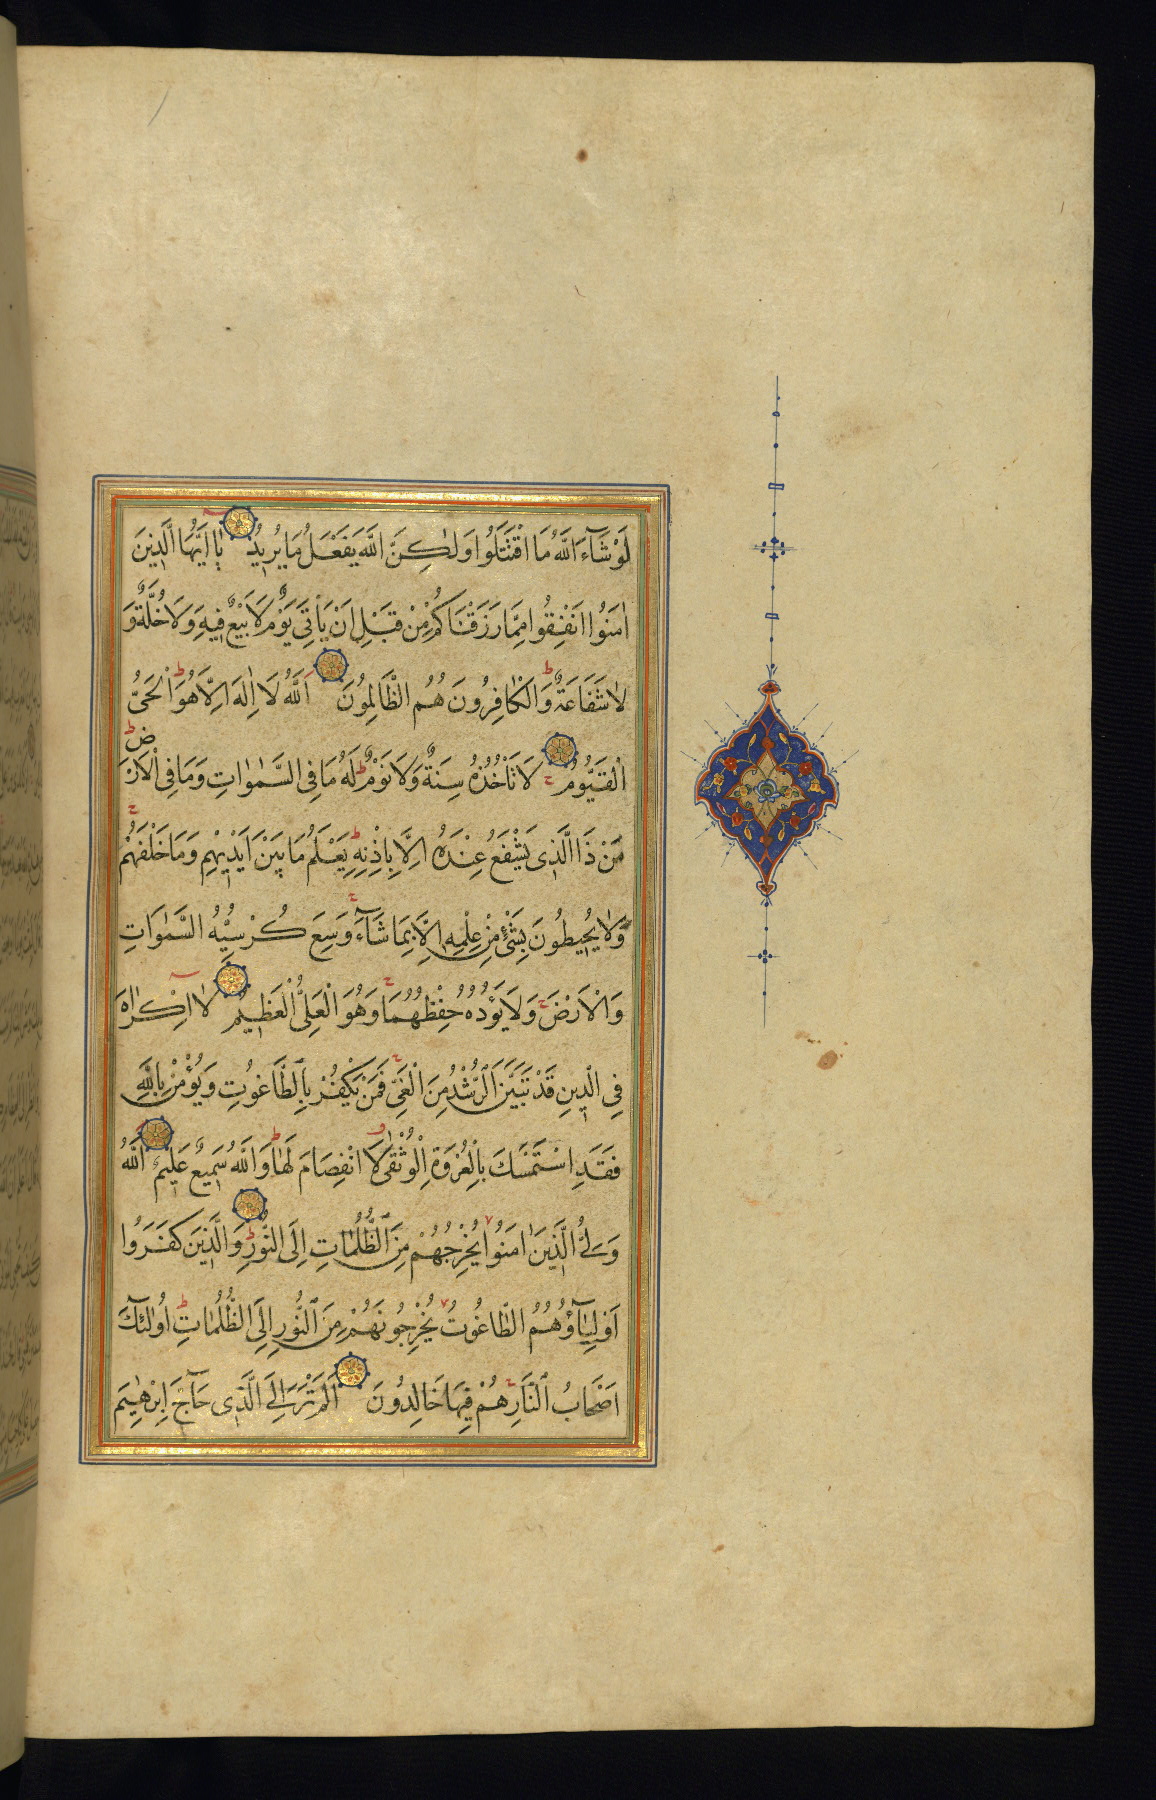 لَوْ شَآءَ اللّٰهُ مَا اقْتَتَلُوا وَلٰكِنَّ اللّٰهَ يَفْعَلُ مَا يُرِيدُ يٰٓا اَيُّهَا الَّذِينَ
اٰمَنُوا اَنْفِقُوا مِمَّا رَزَقْنَاكُمْ مِنْ قَبْلِ اَنْ يَأْتِيَ يَوْمٌ لَا بَيْعٌ فِيهِ وَلَا خُلَّةٌ وَ
لَا شَفَاعَةٌ وَالْكَافِرُونَ هُمُ الظَّالِمُونَ اَللّٰهُ لَا اِلٰهَ اِلَّا هُوَ الْحَيُّ
الْقَيُّومُ لَا تَأْخُذُهُ سِنَةٌ وَلَا نَوْمٌ لَهُ مَا فِي السَّمٰوَاتِ وَمَا فِي الْاَرْضِ
مَنْ ذَا الَّذِي يَشْفَعُ عِنْدَهُ اِلَّا بِاِذْنِهِ يَعْلَمُ مَا بَيْنَ اَيْدِيهِمْ وَمَا خَلْفَهُمْ
وَلَا يُحِيطُونَ بِشَيْءٍ مِنْ عِلْمِهِ اِلَّا بِمَا شَآءَ وَسِعَ كُرْسِيُّهُ السَّمٰوَاتِ
وَالْاَرْضَ وَلَا يَؤُدُهُ حِفْظُهُمَا وَهُوَ الْعَلِيُّ الْعَظِيمُ لَا اِكْرَاهَ
فِي الدِّينِ قَدْ تَبَيَّنَ الرُّشْدُ مِنَ الْغَيِّ فَمَنْ يَكْفُرْ بِالطَّاغُوتِ وَيُؤْمِنْ بِاللّٰهِ
فَقَدِ اسْتَمْسَكَ بِالْعُرْوَةِ الْوُثْقٰى لَا انْفِصَامَ لَهَا وَاللّٰهُ سَمِيعٌ عَلِيمٌ اَللّٰهُ
وَلِيُّ الَّذِينَ اٰمَنُوا يُخْرِجُهُمْ مِنَ الظُّلُمَاتِ اِلَى النُّورِ وَالَّذِينَ كَفَرُوا
اَوْلِيَآؤُهُمُ الطَّاغُوتُ يُخْرِجُونَهُمْ مِنَ النُّورِ اِلَى الظُّلُمَاتِ اُولٰئِكَ
اَصْحَابُ النَّارِ هُمْ فِيهَا خَالِدُونَ اَلَمْ تَرَ اِلَى الَّذِي حَآجَّ اِبْرٰهِيمَ